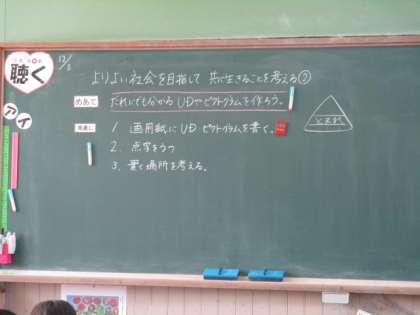 聴く
アイ
よりよい社会を目指して 共に生きることを考える②
めあて
だれにでもわかるUDやピクトグラムを作ろう。
見通し
1 画用紙にUDピクトグラムを書く。
2. 点字をうつ
3. 置く場所を考える。